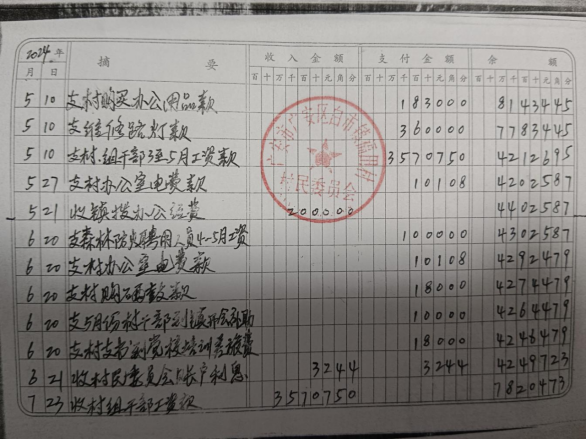 2024年 摘 要 收入金额 支付金额 余 额
月 日 百十万千百十元角分 百十万千百十元角分 百十万千百十元角分
5 10 支村购买办公用品款 183000 8143445
5 10 支维修路灯款 360000 7783445
5 10 支村.组干部3至5月工资款 3570750 4212695
5 27 支村办公室电费款 10108 4202587
5 21 收镇拨办公经费 200000 4402587
6 20 支森林防火聘用人员4-5月工资 100000 4302587
6 20 支村办公室电费款 10108 4292479
6 20 支村购 款 18000 4274479
6 20 支5月份村干部到镇开会补助 10000 4264479
6 20 支村支书到党校培训差旅费 18000 4246479
6 21 收村民委员会上长户利息 3244 3244 4249723
7 23 收村组干部工资款 3570750 7820473
广安市广安区白市镇 村
村民委员会